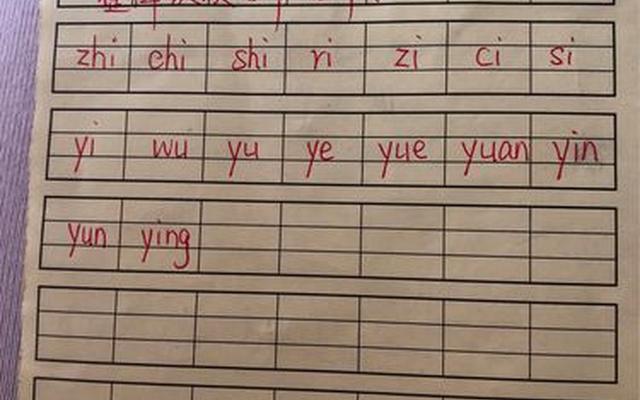 zhi chi shi ri zi ci si
yi wu yu ye yue yuan yin
yun ying